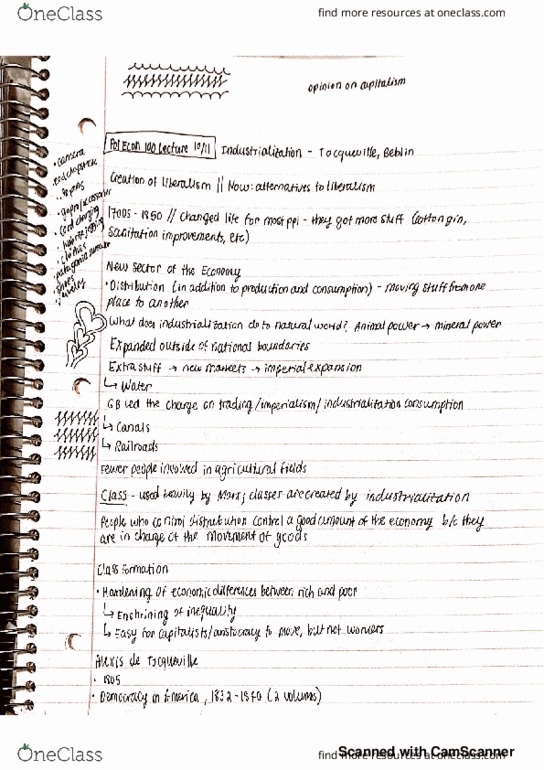 OneClass
find more resources at oneclass.com
opinion on capitalism
Pol Econ 100 Lecture 10/11 Industrialization - Tocqueville, Beblin
Creation of liberalism // Now: alternatives to liberalism
1700s - 1850 // Changed life for most ppl - they got more stuff (cotton gin,
sanitation improvements, etc)
New sector of the Economy
• Distribution (in addition to production and consumption) - moving stuff from one
place to another
What does industrialization do to natural world? Animal power → mineral power
Expanded outside of national boundaries
Extra stuff → new markets → imperial expansion
↳ Water
GB led the charge on trading/imperialism/industrialization consumption
↳ Canals
↳ Railroads
Fewer people involved in agricultural fields
Class - used heavily by Marx; classes are created by industrialization
People who control distribution control a good amount of the economy b/c they
are in charge of the movement of goods
Class Formation
• Hardening of economic differences between rich and poor
↳ Enshrining of inequality
↳ Easy for capitalists/aristocracy to move, but not workers
Alexis de Tocqueville
• 1805
• Democracy in America, 1832-1840 (2 volumes)
• camera
• clothes
• shoes
OneClass
find more resources at oneclass.com
Scanned with CamScanner